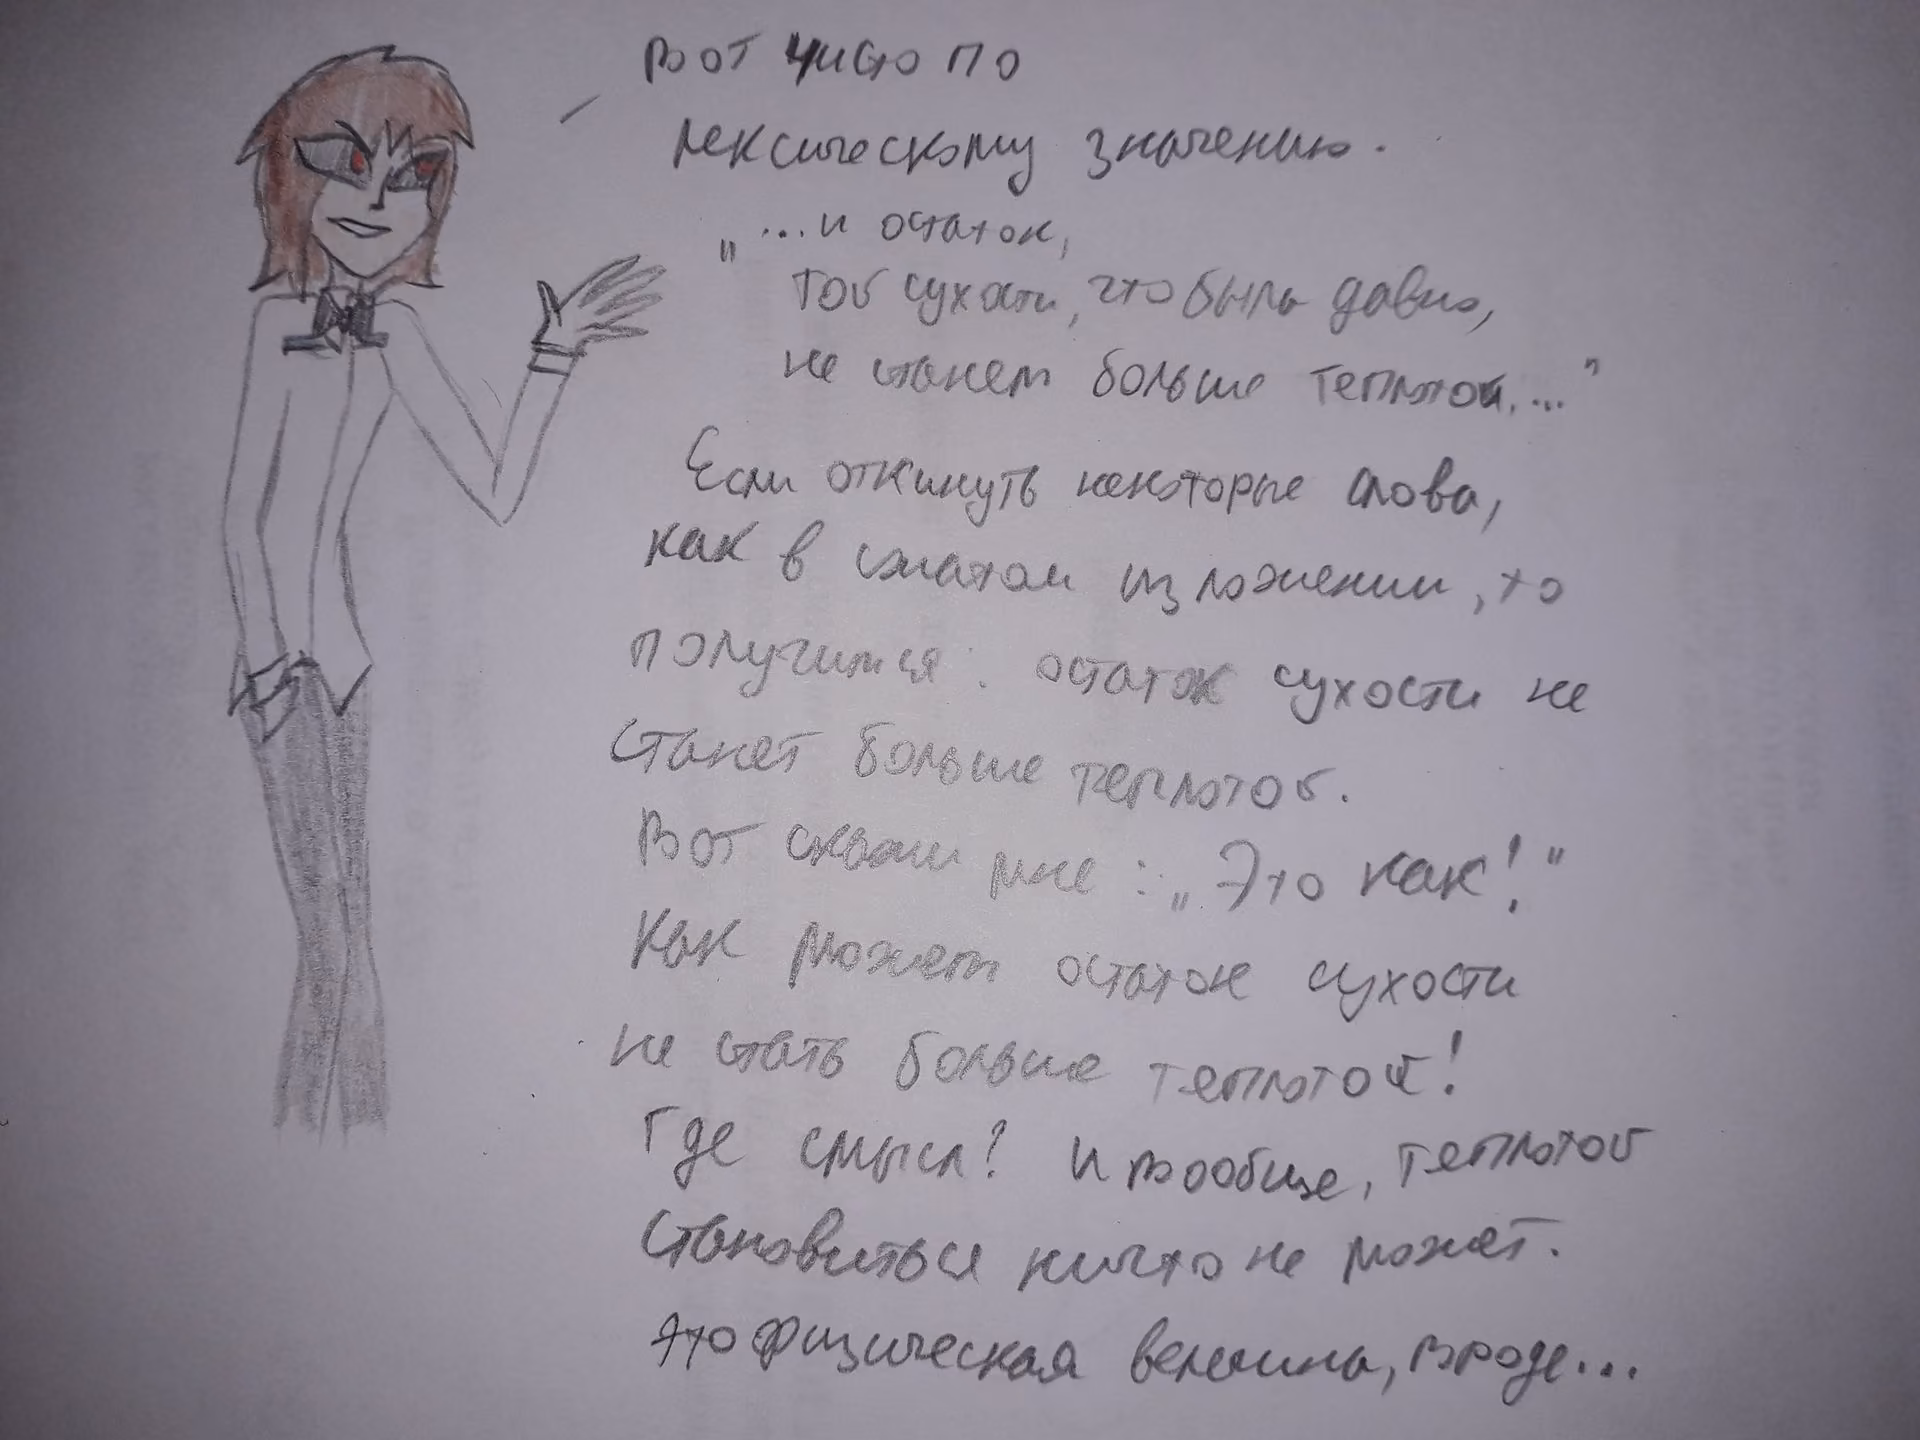 Вот чисто по
лексическому значению.
"...и остаток,
той сухости, что была давно,
не станет больше теплотой..."
Если откинуть некоторые слова,
как в сжатом изложении, то
получится: остаток сухости не
станет больше теплотой.
Вот скажи мне: "Это как!"
Как может остаток сухости
не стать больше теплотой!
Где смысл? И вообще, теплотой
становиться ничто не может.
Это физическая величина, вроде...